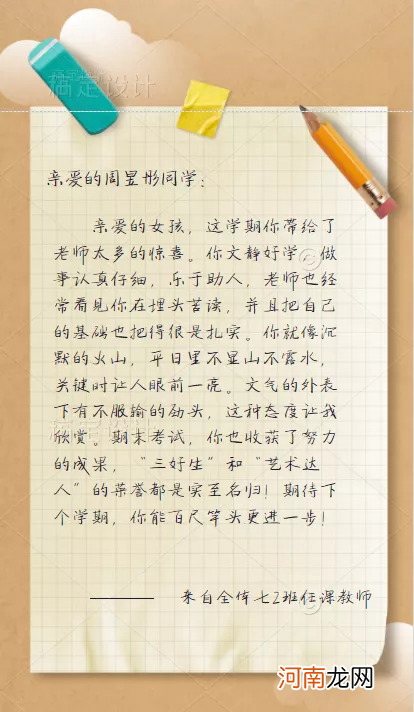 搞定设计
亲爱的周昱彤同学：
亲爱的女孩，这学期你带给了
老师太多的惊喜。你文静好学，做
事认真仔细，乐于助人，老师也经
常看见你在埋头苦读，并且把自己
的基础也把得很是扎实。你就像沉
默的火山，平日里不显山不露水，
关键时让人眼前一亮。文气的外表
下有不服输的劲头，这种态度让我
欣赏。期末考试，你也收获了努力
的成果，“三好生”和“艺术达
人”的荣誉都是实至名归！期待下
个学期，你能百尺竿头更进一步！
——— 来自全体七2班任课教师
河南龙网